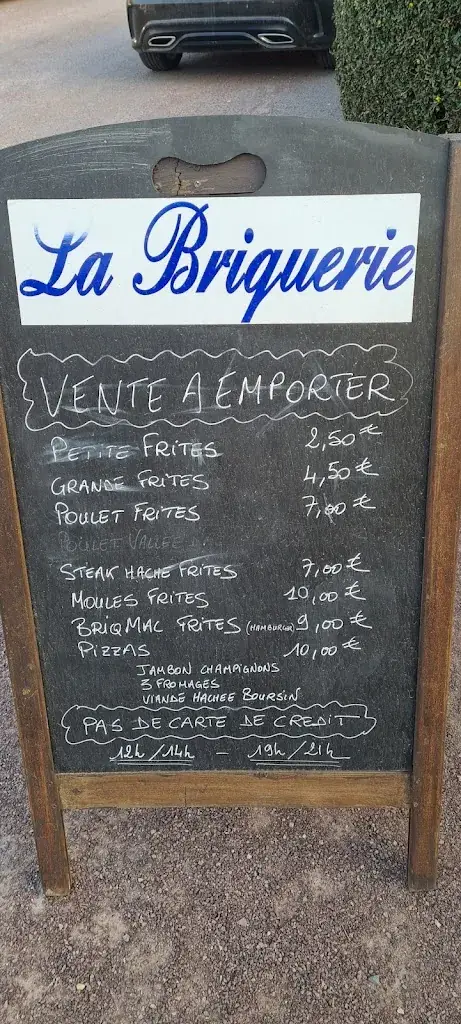 La Briquerie
VENTE A EMPORTER
PETITE FRITES 2,50 €
GRANDE FRITES 4,50 €
POULET FRITES 7,00 €
POULET VALLÉE
STEAK HACHE FRITES 7,00 €
MOULES FRITES 10,00 €
BRIQMAC FRITES (HAMBURGER) 9,00 €
PIZZAS 10,00 €
JAMBON CHAMPIGNONS
3 FROMAGES
VIANDE HACHEE BOURSIN
PAS DE CARTE DE CREDIT
12h/14h - 19h/21h